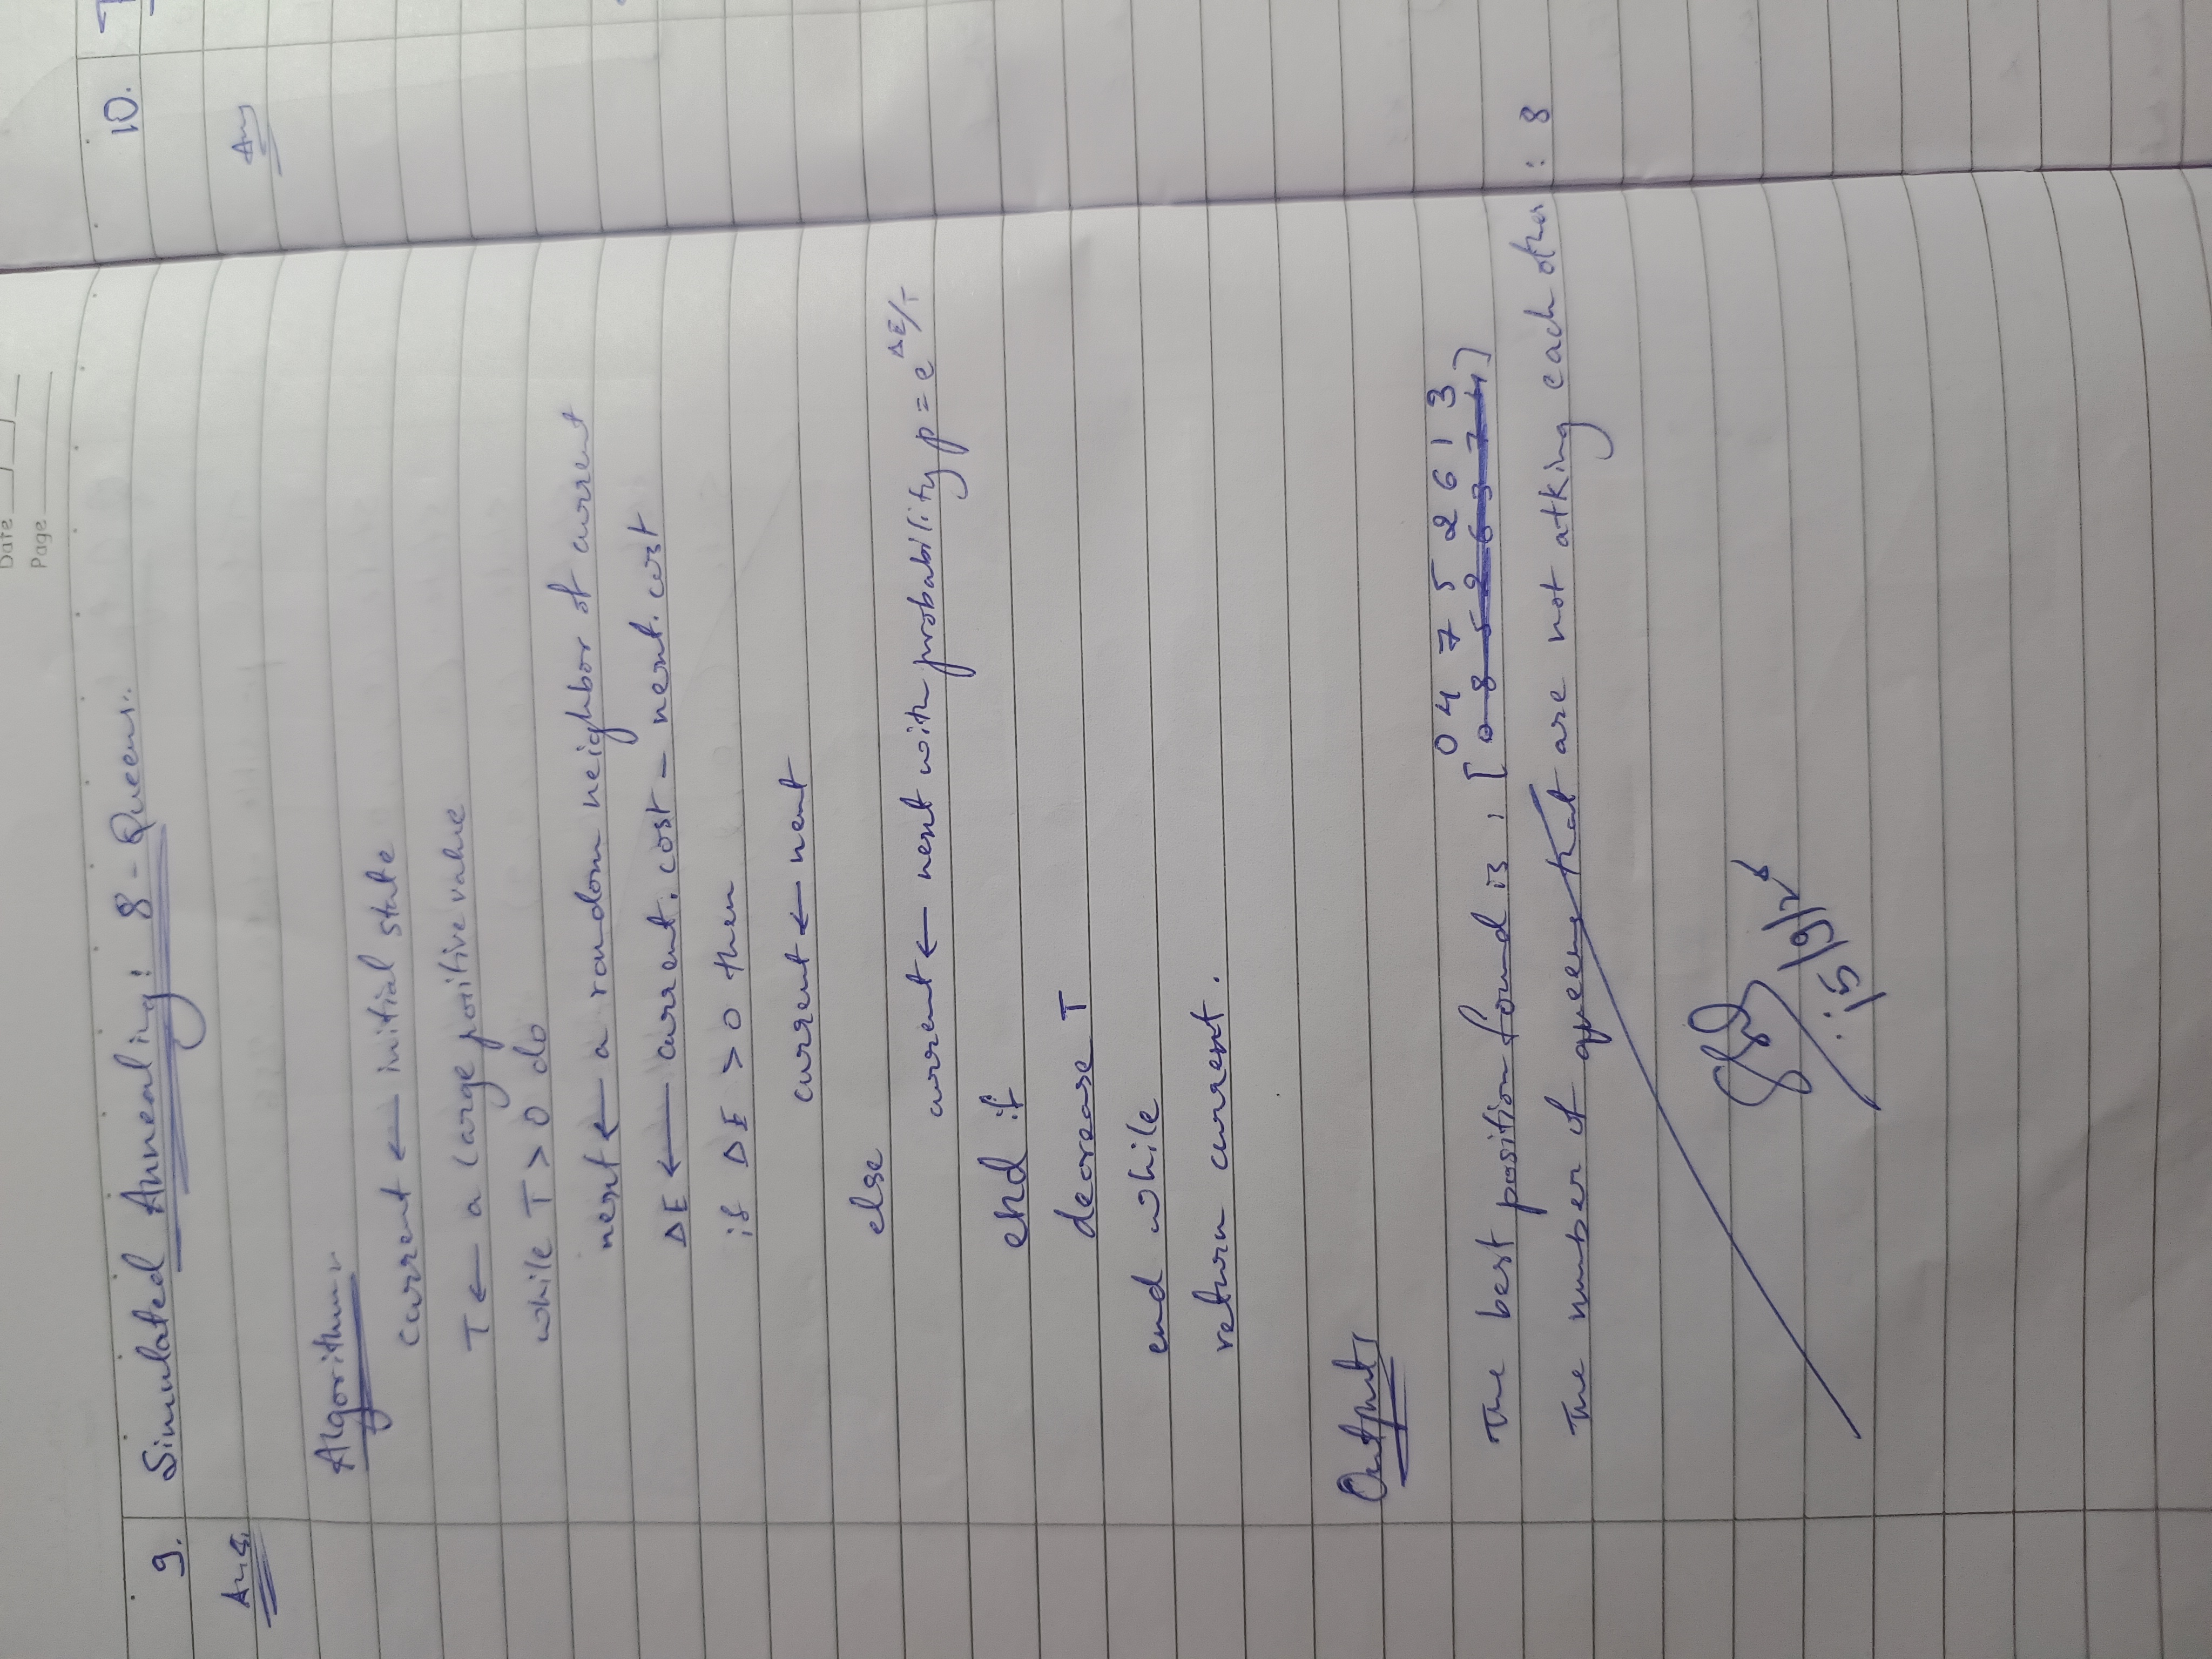 Date
Page
9. Simulated Annealing: 8-Queens.
Ans.
Algorithm
current ← initial state
T ← a large positive value
while T > 0 do
next ← a random neighbor of current
ΔE ← current.cost - next.cost
if ΔE > 0 then
current ← next
else
current ← next with probability p = e^ΔE/T
end if
decrease T
end while
return current.
Output
0 4 7 5 2 6 1 3
The best position found is : [0 8 5 2 6 3 7 4]
The number of queens that are not atking each other : 8
15/9/25
10.
Ans